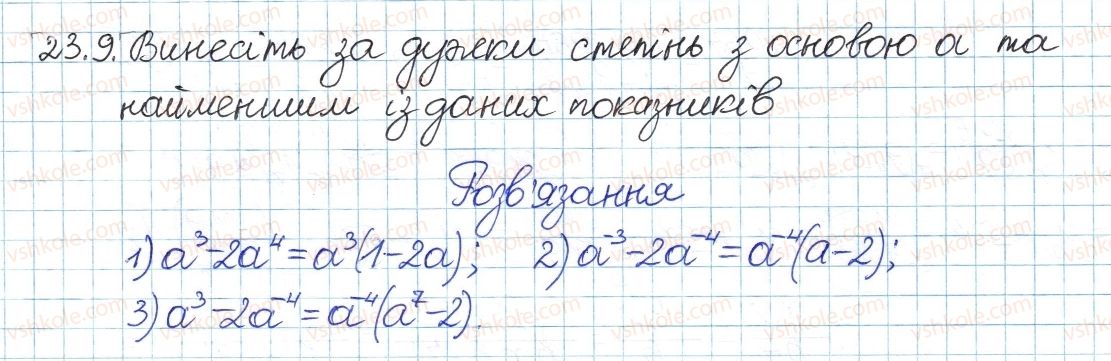 23.9. Винесіть за дужки степінь з основою a та
найменшим із даних показників
Розв'язання
1) a³-2a⁴=a³(1-2a); 2) a⁻³-2a⁻⁴=a⁻⁴(a-2);
3) a³-2a⁻⁴=a⁻⁴(a⁷-2).